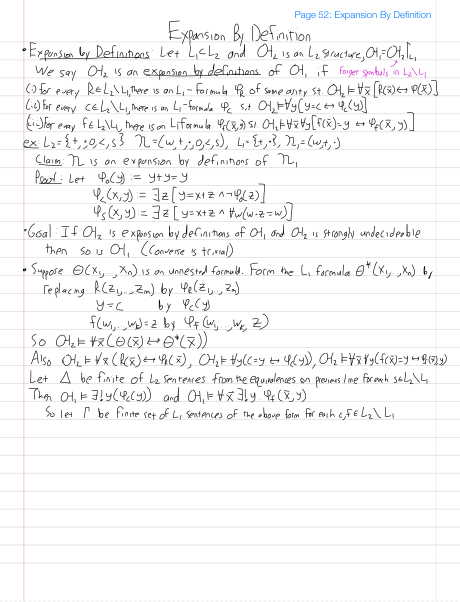 Page 52: Expansion By Definition
Expansion By Definition
• Expansion by Definitions: Let L₁⊂L₂ and OH₂ is an L₂ structure, OH₁=OH₂↾L₁
We say OH₂ is an expansion by definitions of OH₁ if forget symbols in L₂\L₁
(i) For every R∈L₂\L₁, there is an L₁-formula φ_R of same arity s.t. OH₂⊨∀x̄[R(x̄)↔φ(x̄)]
(ii) For every c∈L₂\L₁, there is an L₁-formula φ_c s.t OH₂⊨∀y[y=c↔φ_c(y)]
(iii) For every f∈L₂\L₁ there is an L₁ formula φ_f(x̄,y) st OH₂⊨∀x̄∀y[f(x̄)=y↔φ_f(x̄,y)]
ex: L₂={+,·,0,<,s} 𝒩=(ω,+,·,0,<,s), L₁={+,·}, 𝒩₁=(ω,+,·)
Claim: 𝒩 is an expansion by definitions of 𝒩₁
Proof: Let φ₀(y) := y+y=y
φ_<(x,y) := ∃z[y=x+z ∧ ¬φ₀(z)]
φ_s(x,y) := ∃z[y=x+z ∧ ∀w(w·z=w)]
• Goal: If OH₂ is expansion by definitions of OH₁ and OH₂ is strongly undecideable
then so is OH₁ (Converse is trivial)
• Suppose Θ(x₁,...,xₙ) is an unnested formula. Form the L₁ formula Θ*(x₁,...,xₙ) by
replacing R(z₁,...,zₘ) by φ_R(z₁,...,zₘ)
y=c by φ_c(y)
f(w₁,...,wₖ)=z by φ_f(w₁,...,wₖ,z)
So OH₂⊨∀x̄(Θ(x̄)↔Θ*(x̄))
Also OH₂⊨∀x̄(R(x̄)↔φ_R(x̄)), OH₂⊨∀y(c=y↔φ_c(y)), OH₂⊨∀x̄∀y(f(x̄)=y↔φ_f(x̄,y))
Let Δ be finite of L₂ sentences from the equivalences on previous line for each s∈L₂\L₁
Then OH₁⊨∃!y(φ_c(y)) and OH₁⊨∀x̄∃!y φ_f(x̄,y)
So let Γ be finite set of L₁ sentences of the above form for each c,f∈L₂\L₁